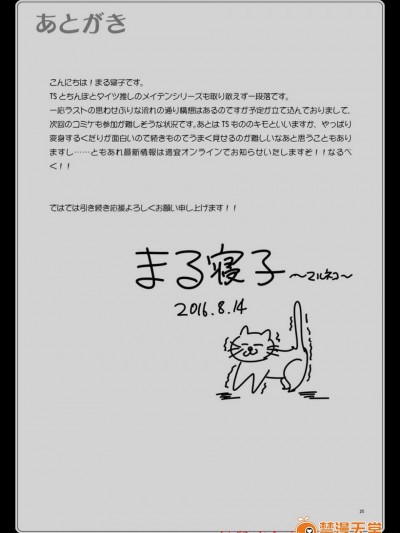 あとがき
こんにちは！まる寝子です。
TSとちんぽとタイツ推しのメイテンシリーズも取り敢えず一段落です。
一応ラストの思わせぶりな流れの通り構想はあるのですが予定が立て込んでおりまして、
次回のコミケも参加が難しそうな状況です。あとはTSもののキモといいますが、やっぱり
変身するくだりが面白いので続きものでうまく見せるのが難しいなあと思うこともあり
ますし……ともあれ最新情報は適宜オンラインでお知らせいたしますぞ！！なるべ
く！！
ではでは引き続き応援よろしくお願い申し上げます！！
まる寝子 〜マルネコ〜
2016.8.14
25
禁漫天堂